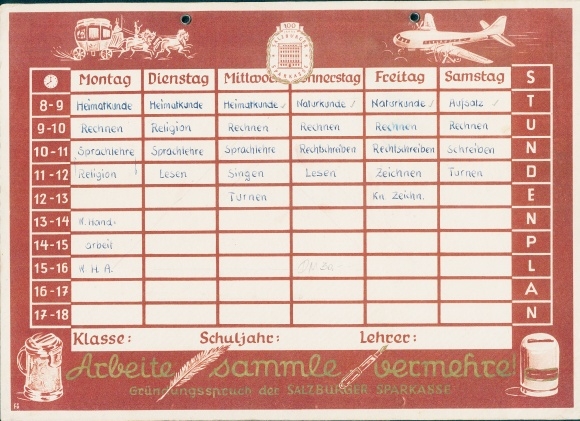 100
SALZBURGER SPARKASSE
Montag Dienstag Mittwoch Donnerstag Freitag Samstag
8-9 Heimatkunde Heimatkunde Heimatkunde Naturkunde Naturkunde Aufsatz
9-10 Rechnen Religion Rechnen Rechnen Rechnen Rechnen
10-11 Sprachlehre Sprachlehre Sprachlehre Rechtschreiben Rechtschreiben Schreiben
11-12 Religion Lesen Singen Lesen Zeichnen Turnen
12-13 Turnen Kn. Zeichn.
13-14 W. Hand-
14-15 arbeit
15-16 W. H. A.
16-17
17-18
STUNDENPLAN
Klasse: Schuljahr: Lehrer:
Arbeite sammle vermehre!
Gründungsspruch der SALZBURGER SPARKASSE